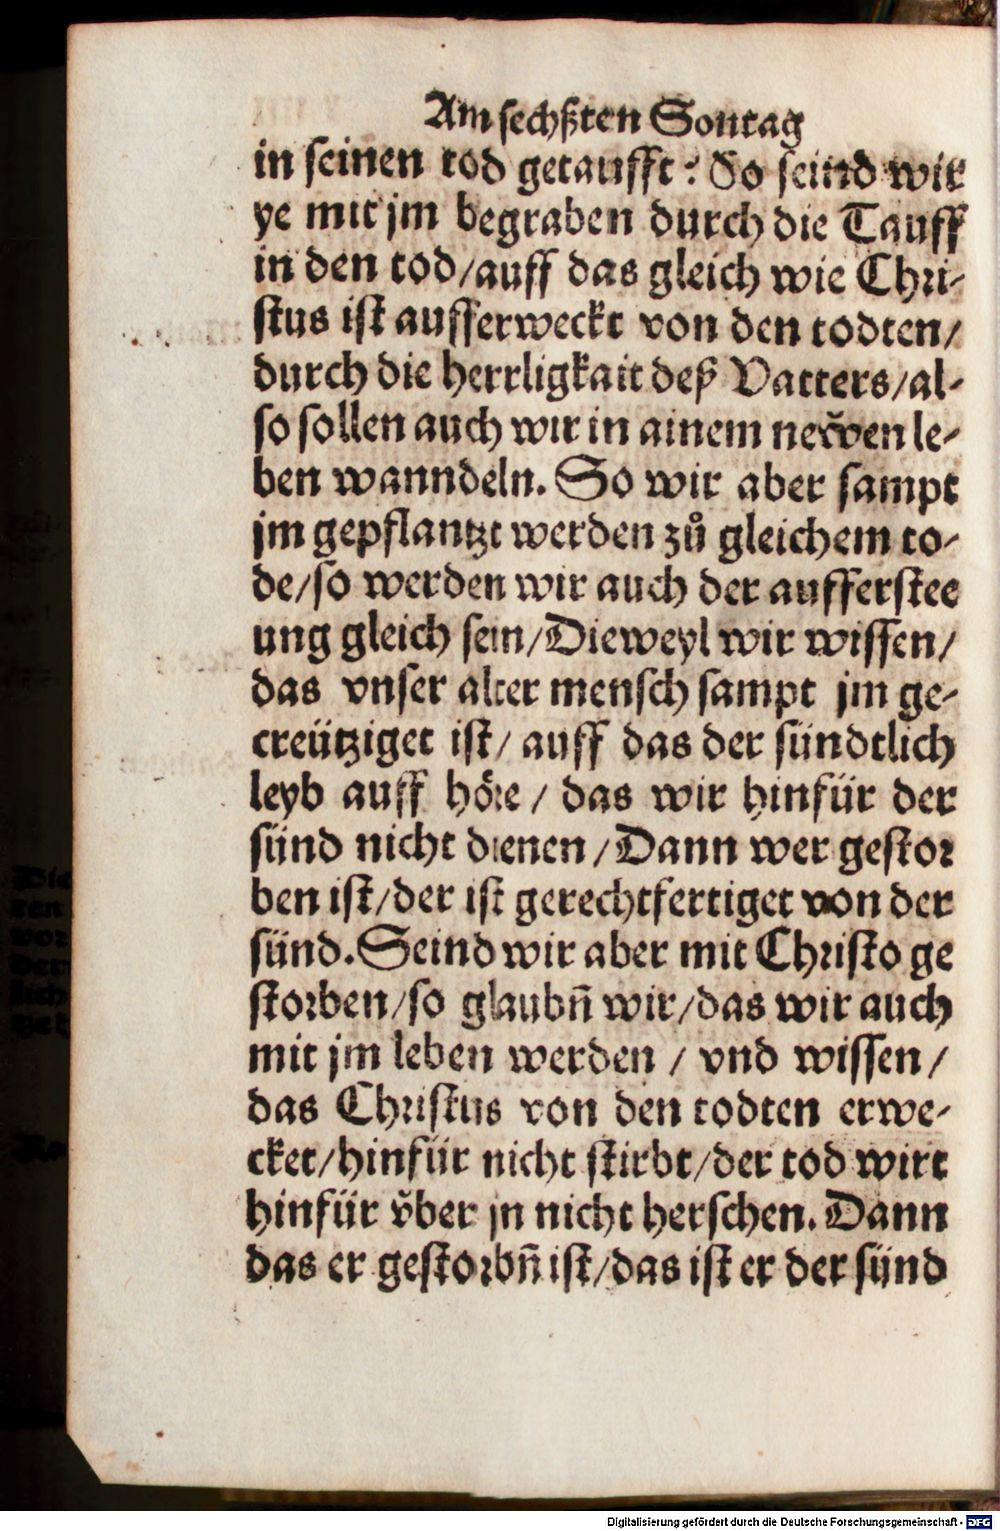 Am sechßten Sontag
in seinen tod getaufft? So seind wir
ye mit jm begraben durch die Tauff
in den tod/auff das gleich wie Chri-
stus ist aufferweckt von den todten/
durch die herrligkait deß Vatters/al-
so sollen auch wir in ainem newen le-
ben wanndeln. So wir aber sampt
jm gepflantzt werden zů gleichem to-
de/so werden wir auch der aufferstee
ung gleich sein/Dieweyl wir wissen/
das vnser alter mensch sampt jm ge-
creütziget ist/ auff das der sündtlich
leyb auff höre / das wir hinfür der
sünd nicht dienen /Dann wer gestor
ben ist/der ist gerechtfertiget von der
sünd.Seind wir aber mit Christo ge
storben/so glaubn̄ wir/das wir auch
mit jm leben werden / vnd wissen/
das Christus von den todten erwe-
cket/hinfür nicht stirbt/der tod wirt
hinfür vͤber jn nicht herschen. Dann
das er gestorbn̄ ist/das ist er der sünd
Digitalisierung gefördert durch die Deutsche Forschungsgemeinschaft - DFG